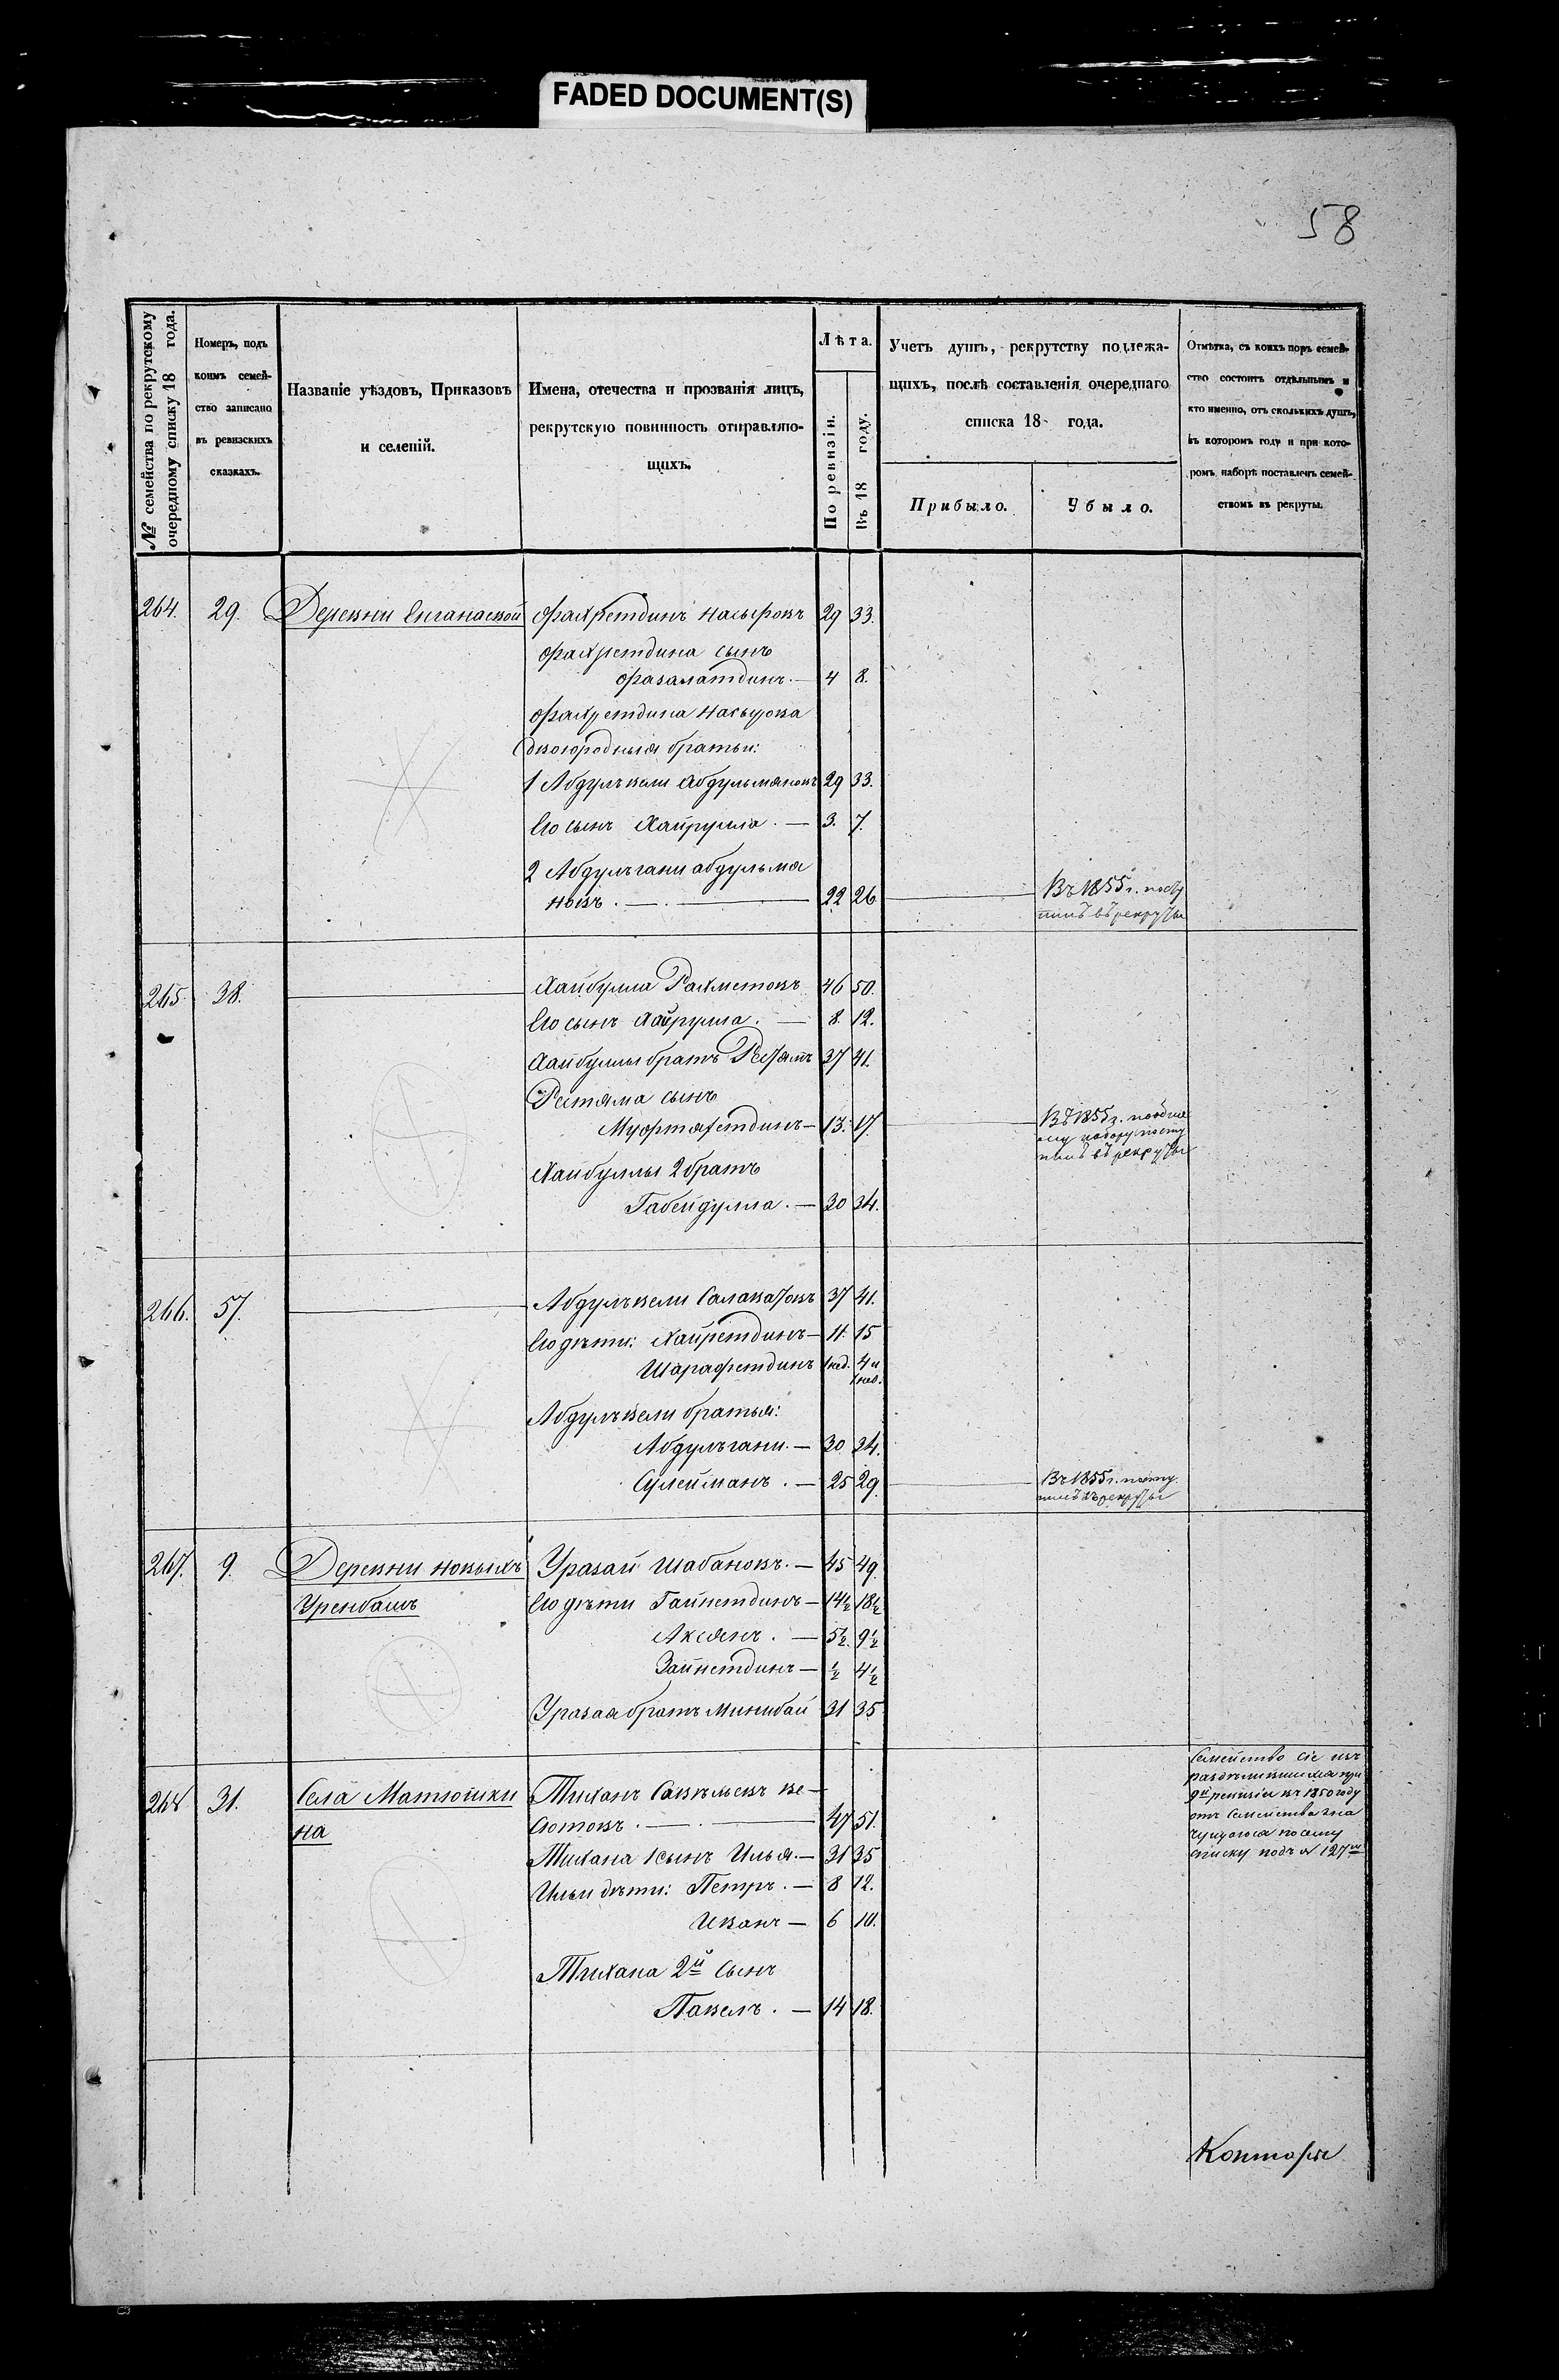 FADED DOCUMENT(S)
58
№ семейства по рекрутскому очередному списку 18 года.
Номеръ, подъ
коимъ семей-
ство записано
въ ревизскихъ
сказкахъ.
Названіе уѣздовъ, Приказовъ
и селеній.
Имена, отечества и прозванія лицъ,
рекрутскую повинность отправляю-
щихъ.
Лѣта.
По ревизіи.
Въ 18 году.
Учетъ душъ, рекрутству подлежа-
щихъ, послѣ составленія очереднаго
списка 18 года.
Прибыло.
Убыло.
Отмѣтка, съ коихъ поръ семей-
ство состоитъ отдѣльнымъ и
кто именно, отъ сколькихъ душъ,
въ которомъ году и при кото-
ромъ наборѣ поставленъ семей-
ствомъ въ рекруты.
264. 29. Деревни Енганаевой Фахретдинъ Насыровъ 29 33.
Фахретдина сынъ
Фазалатдинъ. — 4 8.
Фахретдина Насырова
двоюродныя братьи:
1 Абдулъвели Абдульмяновъ 29 33.
Его сынъ Хайрулла. — 3. 7.
2 Абдулъгани абдульмя
новъ. — . — 22 26 Въ 1855 г. посту
пилъ въ рекруты
265. 38. Хайбулла Рахметовъ 46 50.
Его сынъ Хайрулла. — 8. 12.
Хайбуллы братъ Рестямъ 37 41.
Рестяма сынъ
Муфтяхетдинъ — 13. 17. Въ 1855 г. посту
пилъ въ рекруты
Хайбуллы 2 братъ
Габейдулла. — 30 34.
266. 57. Абдулъвели Салаватовъ 37 41.
Его дѣти: Хайретдинъ — 11. 15
Шарафетдинъ 1 нед. 4 и
1 нед.
Абдулъвели братья:
Абдулъгани. — 30 34.
Сулейманъ. — 25 29. Въ 1855 г. посту
пилъ въ рекруты
267. 9. Деревни новыхъ Уразай Шабановъ. — 45 49.
Уренбашъ Его дѣти Гайнетдинъ — 14½ 18½
Аксянъ. — 5½ 9½
Зайнетдинъ — ½ 4½
Уразая братъ Минибай 31 35
268. 31. Села Матюшки Тиханъ Савельевъ Ве —
на дотовъ. — . — 47 51.
Тихана 1 сынъ Илья. — 31 35
Ильи дѣти: Петръ. — 8 12.
Иванъ — 6 10.
Тихана 2й сынъ
Павелъ. — 14 18.
Семейство сіе изъ
раздѣлившихся при
9й ревизіи въ 1850 году
отъ семейства зна
чущагося по сему
списку подъ № 127м